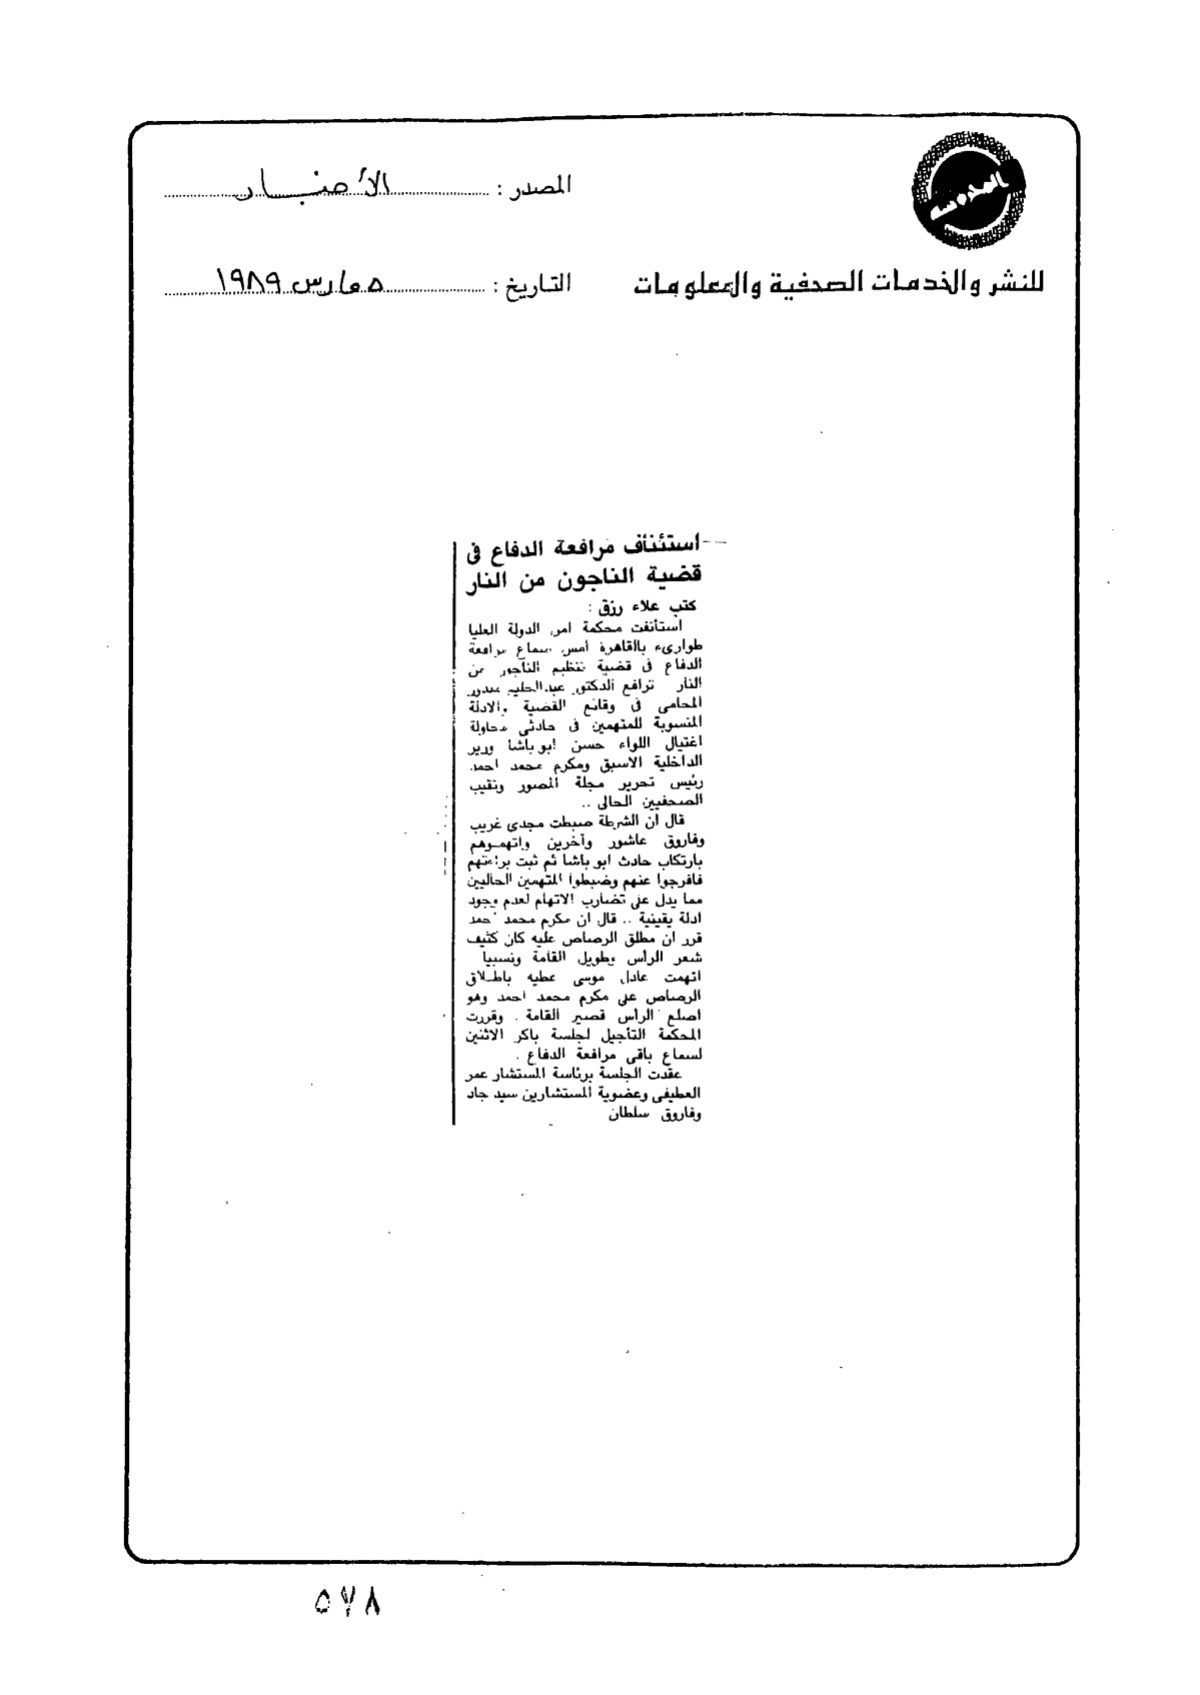 المحروسة
المصدر : الأخبار
للنشر والخدمات الصحفية والمعلومات
التاريخ : ٥ مارس ١٩٨٩
استئناف مرافعة الدفاع فى
قضية الناجون من النار
كتب علاء رزق :
استأنفت محكمة امن الدولة العليا
طوارىء بالقاهرة أمس سماع مرافعة
الدفاع فى قضية تنظيم الناجون من
النار ترافع الدكتور عبدالحليم مندور
المحامى فى وقائع القضية والادلة
المنسوبة للمتهمين فى حادثى محاولة
اغتيال اللواء حسن ابو باشا وزير
الداخلية الاسبق ومكرم محمد احمد
رئيس تحرير مجلة المصور ونقيب
الصحفيين الحالى ..
قال ان الشرطة ضبطت مجدى غريب
وفاروق عاشور وآخرين واتهموهم
بارتكاب حادث ابو باشا ثم ثبت براءتهم
فافرجوا عنهم وضبطوا المتهمين الحاليين
مما يدل على تضارب الاتهام لعدم وجود
ادلة يقينية .. قال ان مكرم محمد احمد
قرر ان مطلق الرصاص عليه كان كثيف
شعر الرأس وطويل القامة ونسبيا
اتهمت عادل موسى عطيه باطلاق
الرصاص على مكرم محمد احمد وهو
اصلع الرأس قصير القامة . وقررت
المحكمة التأجيل لجلسة باكر الاثنين
لسماع باقى مرافعة الدفاع .
عقدت الجلسة برئاسة المستشار عمر
العطيفى وعضوية المستشارين سيد جاد
وفاروق سلطان
٥٧٨